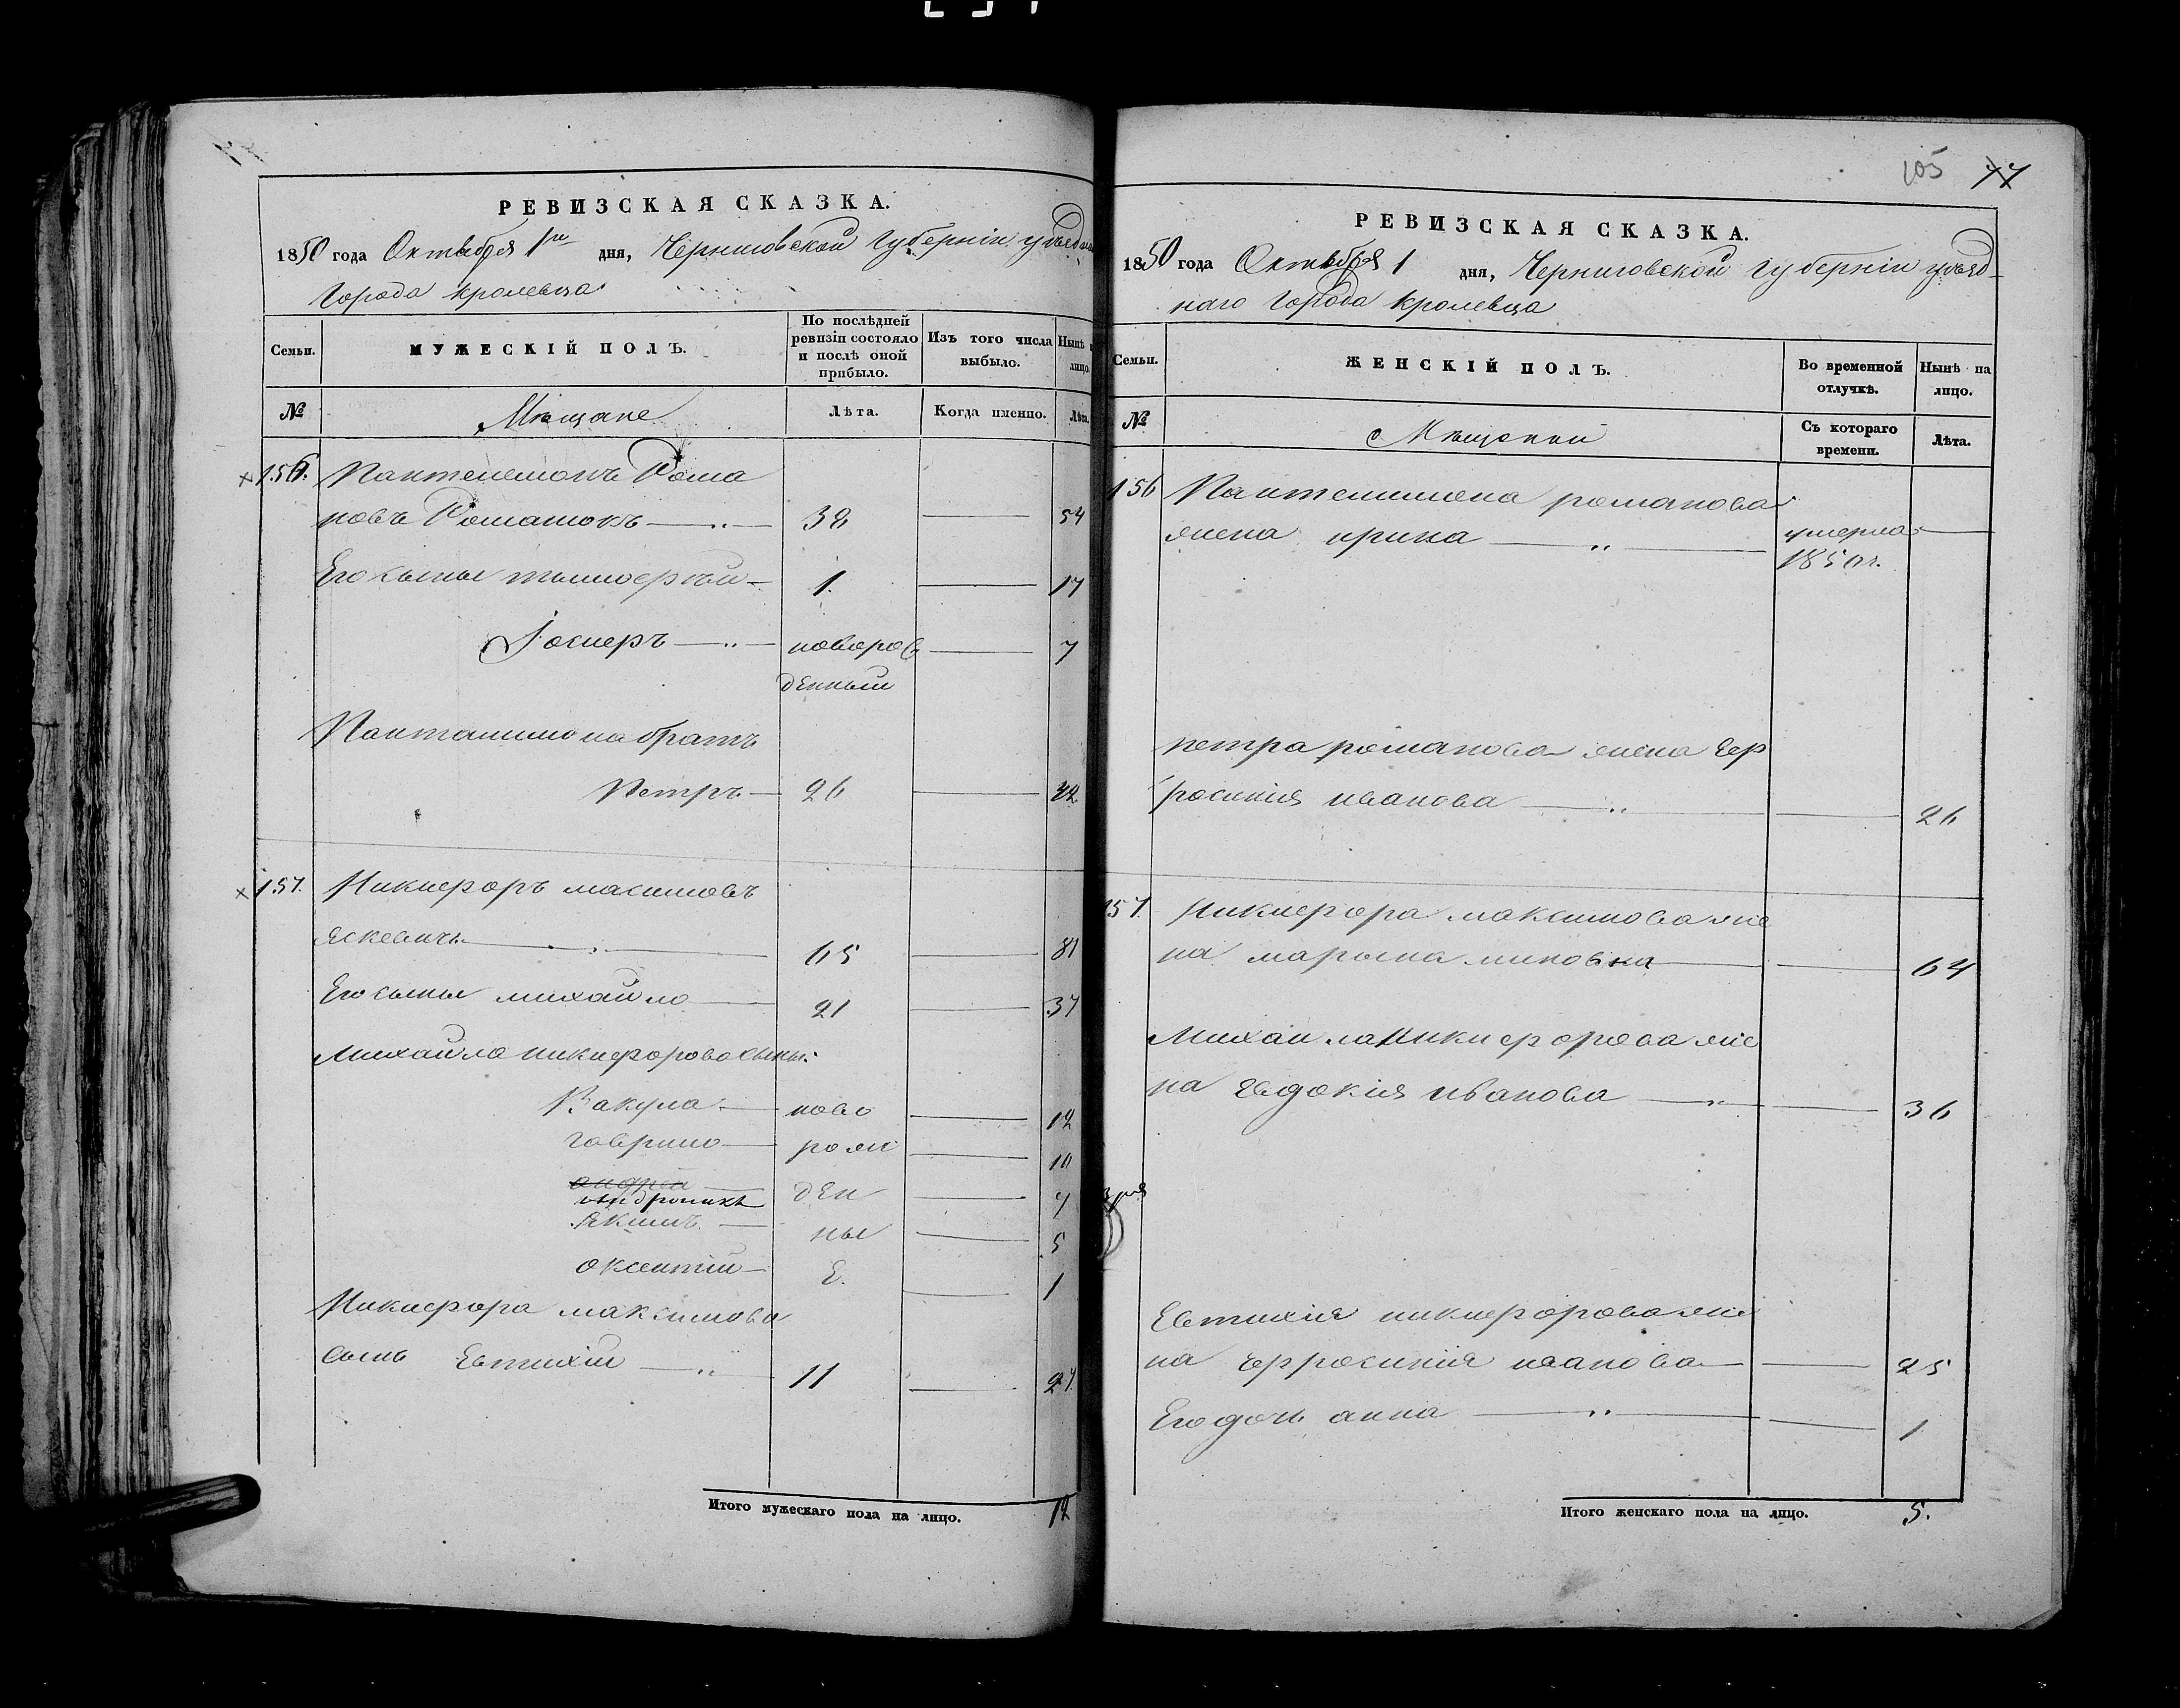 РЕВИЗСКАЯ СКАЗКА.
1850 года Октября 1го дня, Черниговской губернiи уѣзднаго
города кролевца
Семьи. МУЖЕСКIЙ ПОЛЪ. По послѣдней ревизiи состояло и послѣ оной прибыло. Изъ того числа выбыло. Нынѣ на лицо.
№ Мѣщане Лѣта. Когда именно. Лѣта.
156. Пантелемонъ Рома
новъ Романюкъ 38 54
Его сыны тымоерѣй 1. 17
Iосиеръ новорож 7
денный
Пантелимона братъ
Петръ 26 42
157. Никиеоръ масимовъ
яскевичъ 65 81
Его сыны михайло 21 37
Михайла никиеорова сыны:
Вакула ново 12
гаврило рож 10
андрей
андроникъ ден 7
Якимъ ны 5
оксентiй Е. 1
Никиеора максимова
сынъ Евтихiй 11 27
Итого мужескаго пола на лицо. 12
105 77
РЕВИЗСКАЯ СКАЗКА.
1850 года Октября 1 дня, Черниговской губернiи уѣзд-
наго города кролевца
Семьи. ЖЕНСКIЙ ПОЛЪ. Во временной отлучкѣ. Нынѣ на лицо.
№ Мѣщанки Съ котораго времени. Лѣта.
156 Пантелимона романова
жена ирина умерла
1850г.
петра романова жена Еф
росинiя иванова 26
157. Никиеора максимова же
на марьина миновна 64
Михайла Никиеорова же
на Евдокiя иванова 36
Евтихiя никиеорова же
на ефросинiя иванова 25
Его дочь анна 1
Итого женскаго пола на лицо. 5.